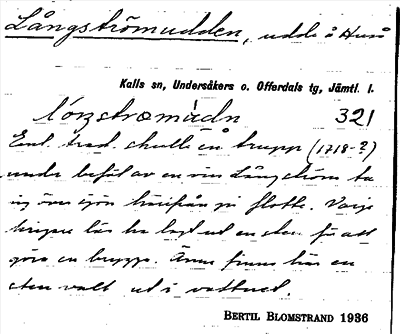 Långströmudden, udde å Huså
Kalls sn, Undersåkers o. Offerdals tg, Jämtl. l.
321
Enl. trad. skulle en trupp (1718-?)
under befäl av en viss Långström ta
sig över sjön härifrån på flotte. Varje
krigare läs ha lagt ut en sten för att
göra en brygga. Ännu finns här en
sten valt ut i vattnet.
BERTIL BLOMSTRAND 1936